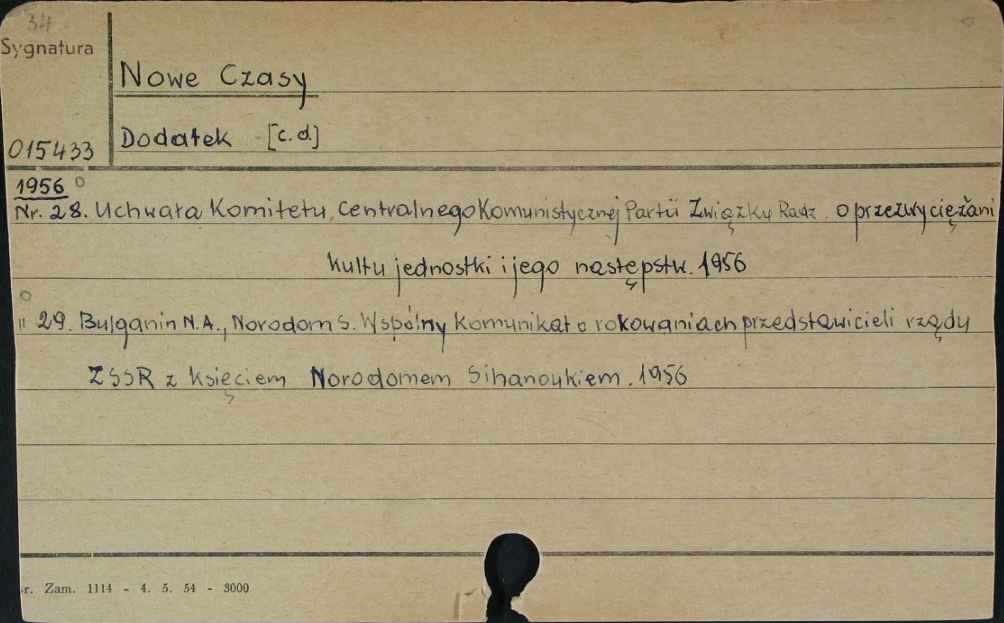 34
Sygnatura
Nowe Czasy
Dodatek [c.d.]
015433
1956
Nr. 28. Uchwała Komitetu Centralnego Komunistycznej Partii Związku Radz. o przezwyciężani
kultu jednostki i jego następstw. 1956
" 29. Bułganin N.A., Norodom S. Wspólny Komunikat o rokowaniach przedstawicieli rządu
ZSSR z Księciem Norodomem Sihanoukiem. 1956
r. Zam. 1114 - 4. 5. 54 - 3000